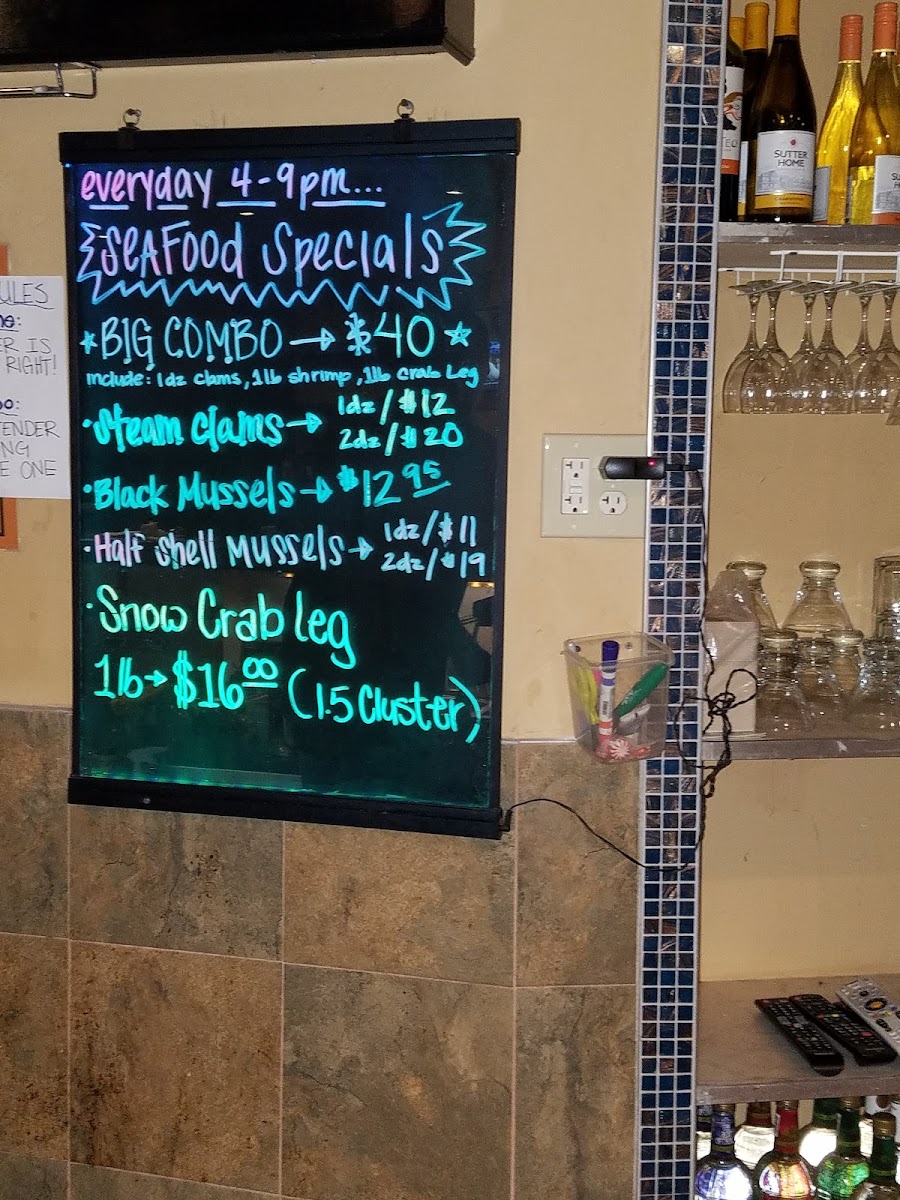 everyday 4-9pm...
Seafood Specials
BIG COMBO → $40
Include: 1dz clams, 1lb shrimp, 1lb Crab Leg
Steam clams → 1dz / $12
2dz / $20
Black Mussels → $12.95
Half Shell Mussels → 1dz / $11
2dz / $19
Snow Crab leg
1lb → $16.00 (1.5 Cluster)
ULES
ER IS
RIGHT!
TENDER
NG
E ONE
SUTTER
HOME